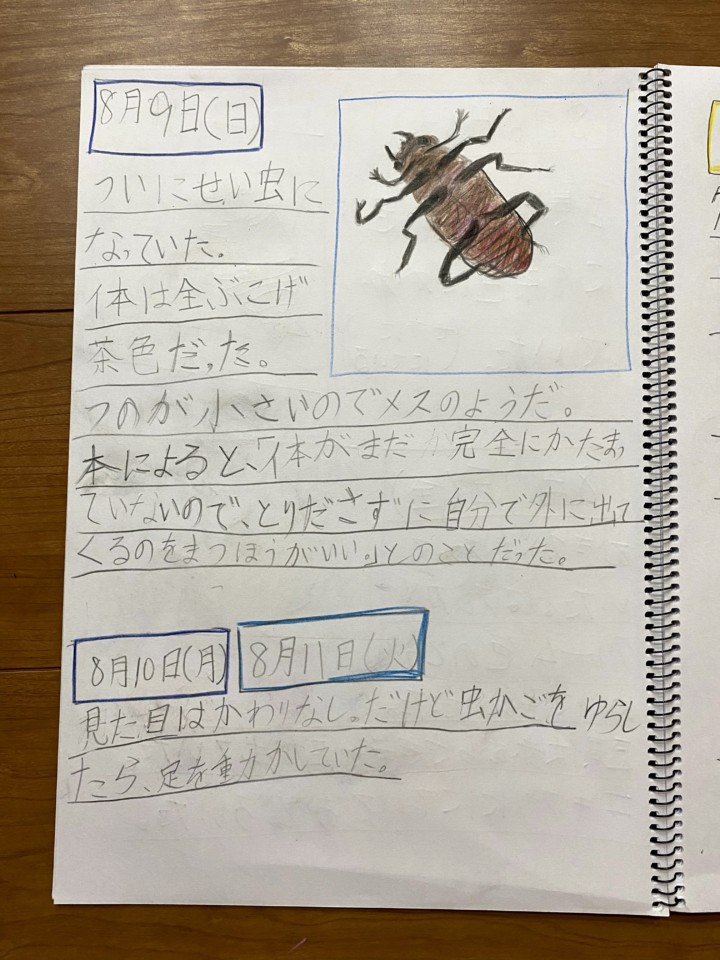 8月9日(日)
ついにせい虫に
なっていた。
体は全ぶこげ
茶色だった。
つのが小さいのでメスのようだ。
本によると、「体がまだ完全にかたまっ
ていないので、とりださずに自分で外に出て
くるのをまつほうがいい。」とのことだった。
8月10日(月) 8月11日(火)
見た目はかわりなし。だけど虫かごをゆらし
たら、足を動かしていた。